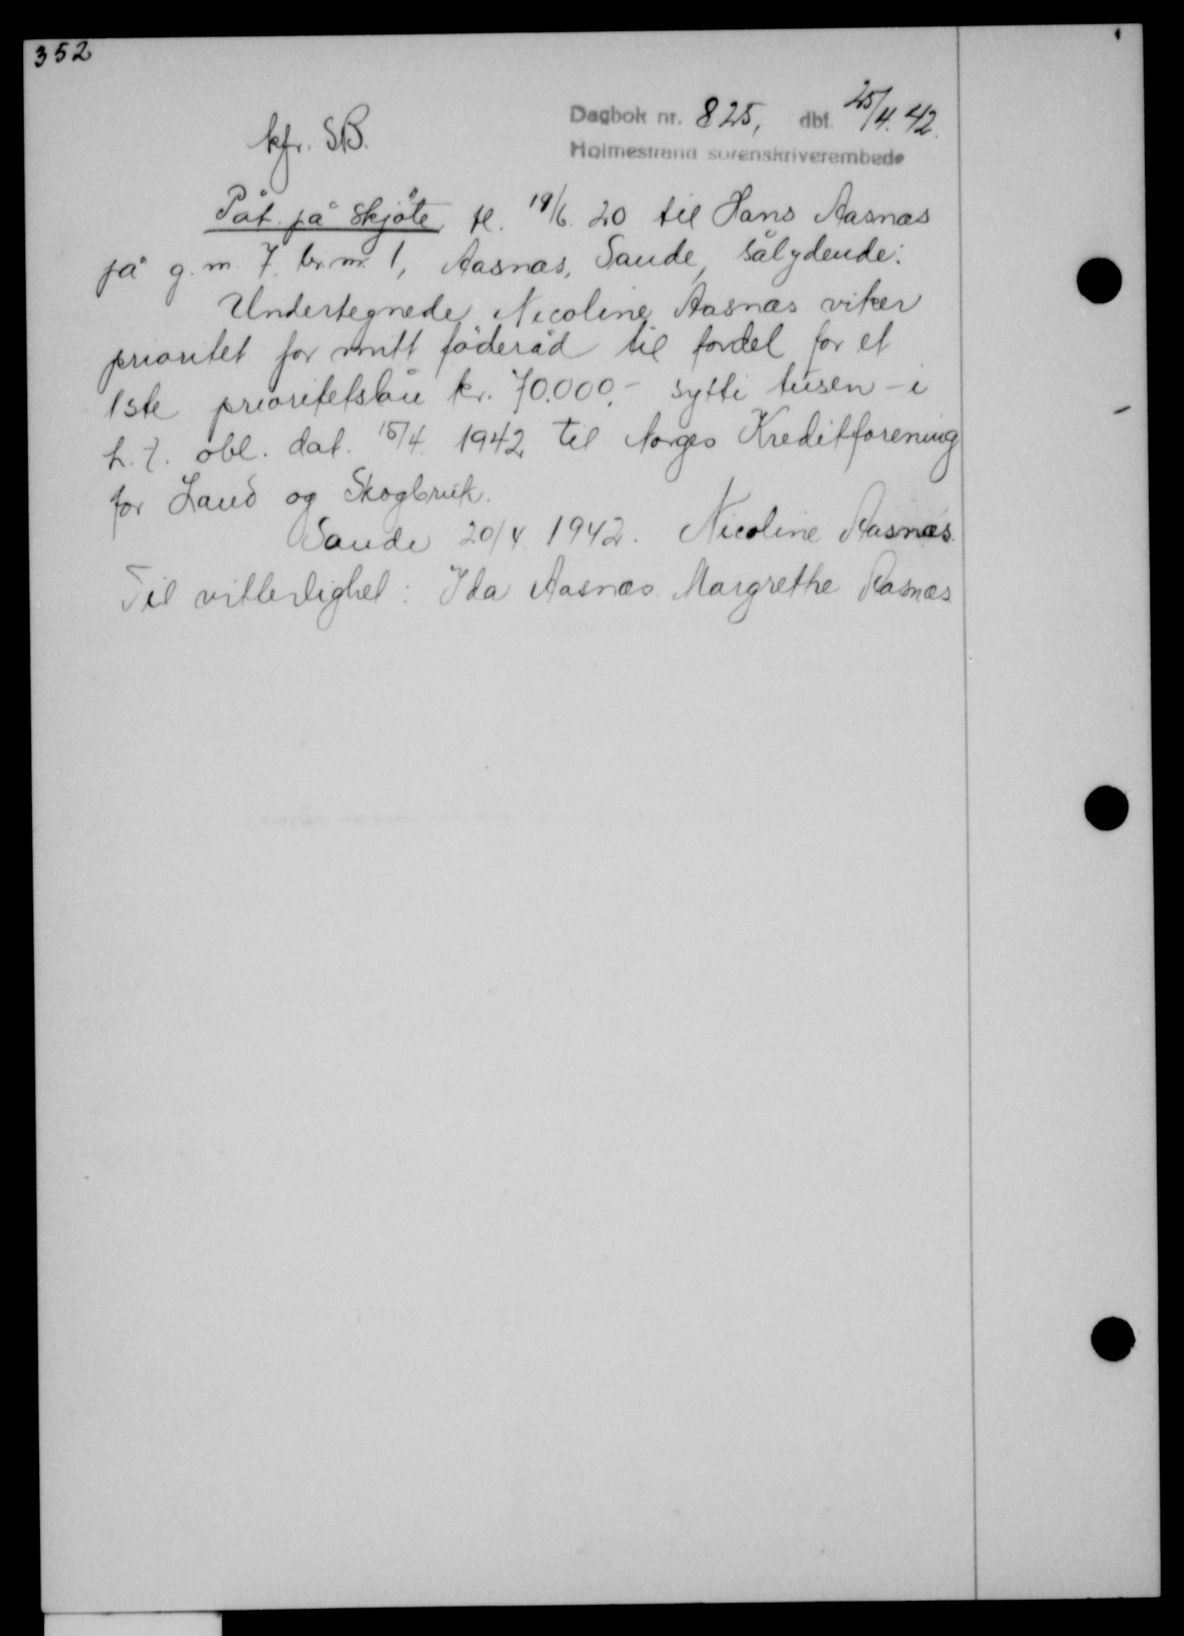 352
Dagbok nr. 825, dbf. 25/4. 42.
kfr. SB.
Holmestrand sorenskriverembede
Påt. på skjöte, tl. 19/6. 20 til Hans Aasnæs
på g. nr. 7. br. nr. 1, Aasnæs, Sande, sålydende:
Undertegnede Nicoline Aasnæs viker
prioritet for mitt föderåd til fordel for et
1ste prioritetslån kr. 70.000,- sytti tusen - i
h. t. obl. dat. 15/4. 1942 til Norges Kreditforening
for Land og Skogbruk.
Sande 20/4 1942. Nicoline Aasnæs.
Til vitterlighet: Ida Aasnæs. Margrethe Aasnæs.